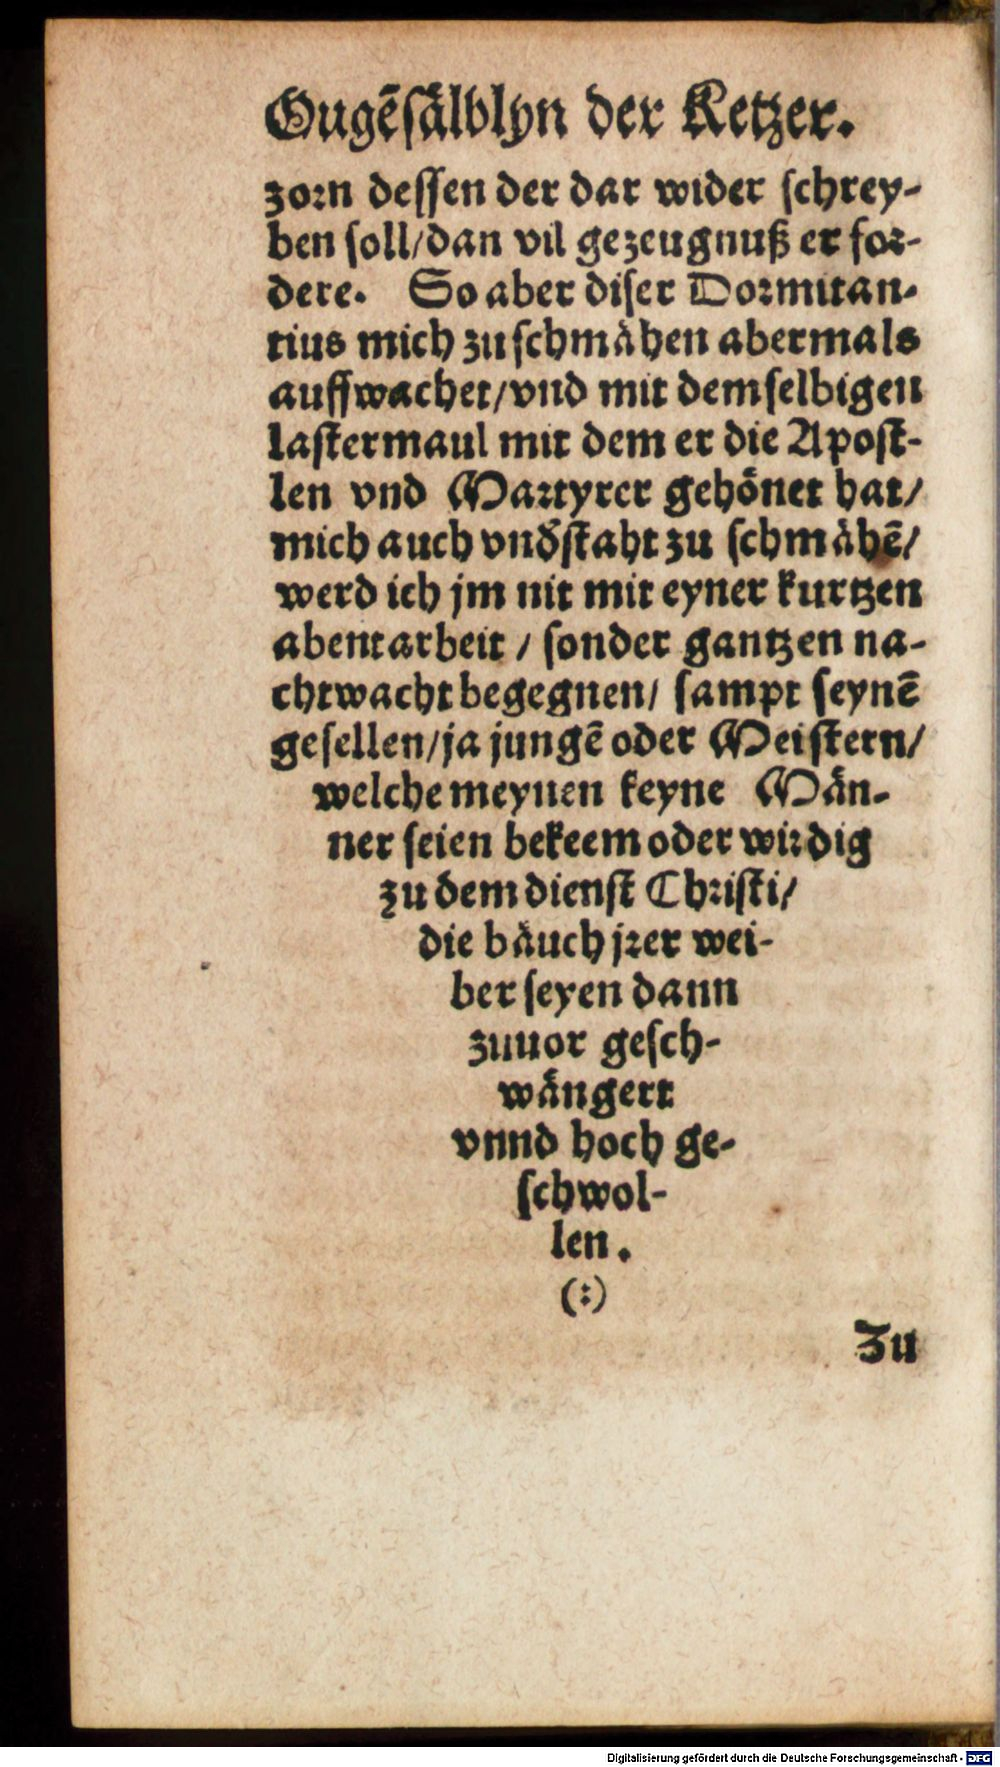 Ougẽsälblyn der Ketzer.
zorn dessen der dar wider schrey-
ben soll/dan vil gezeugnuß er for-
dere. So aber diser Dormitan-
tius mich zu schmähen abermals
auffwachet/vnd mit demselbigen
lastermaul mit dem er die Apost-
len vnd Martyrer gehönet hat/
mich auch vnd̃staht zu schmähẽ/
werd ich jm nit mit eyner kurtzen
abentarbeit / sonder gantzen na-
chtwacht begegnen/ sampt seynẽ
gesellen/ja jungẽ oder Meistern/
welche meynen keyne Män-
ner seien bekeem oder wirdig
zu dem dienst Christi/
die bäuch jrer wei-
ber seyen dann
zuuor gesch-
wängert
vnnd hoch ge-
schwol-
len.
(:)
Zu
Digitalisierung gefördert durch die Deutsche Forschungsgemeinschaft - DFG